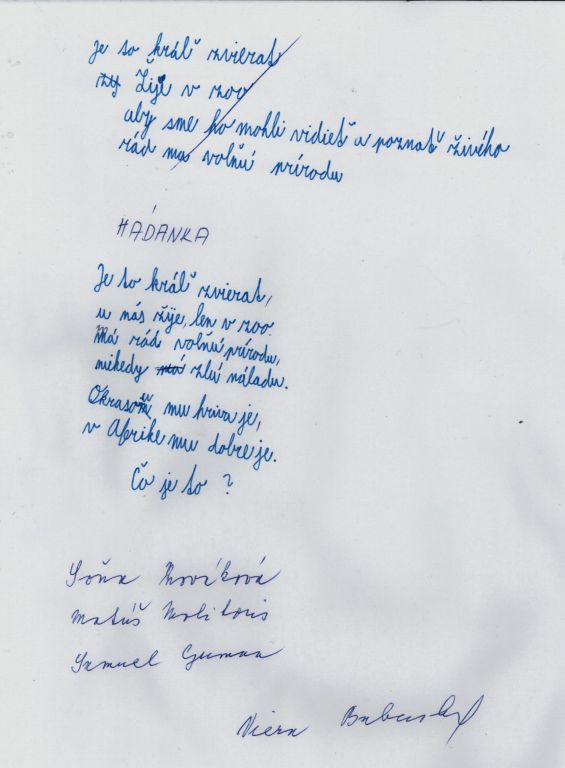 je to kráľ zvierat
Žije v zoo
aby sme ho mohli vidieť a poznať živého
rád ma voľnú prírodu
HÁDANKA
Je to kráľ zvierat,
u nás žije, len v zoo.
Má rád voľnú prírodu,
nikedy má zlú náladu.
Okrasou mu hriva je,
v Afrike mu dobre je.
Čo je to ?
Soňa
Matúš Molitoris
Samuel Guman
Viera